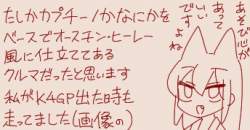 たしかカプチーノかなにかを
ベースでオースチン・ヒーレー
風に仕立ててある
クルマだったと思います
私がK4GP出た時も
走ってました(画像の)
あそび心が
あって
いい
ですよね